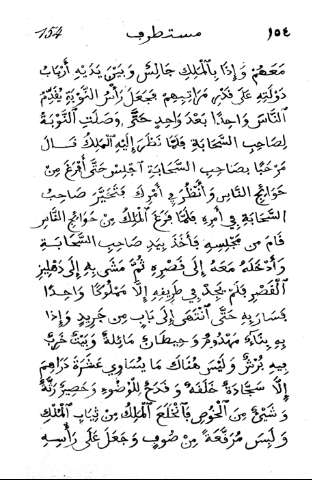 ١٥٤ مستطرف 154
مَعَهُمْ وَإِذَا بِالْمَلِكِ جَالِسٌ وَبَيْنَ يَدَيْهِ أَرْبَابُ
دَوْلَتِهِ عَلَى قَدْرِ مَرَاتِبِهِمْ فَجَعَلَ رَأْسُ النَّوْبَةِ يُقَدِّمُ
النَّاسَ وَاحِدًا بَعْدَ وَاحِدٍ حَتَّى وَصَلَتِ النَّوْبَةُ
لِصَاحِبِ السَّحَابَةِ فَلَمَّا نَظَرَ إِلَيْهِ الْمَلِكُ قَالَ
مَرْحَبًا بِصَاحِبِ السَّحَابَةِ اجْلِسْ حَتَّى أَفْرَغَ مِنْ
حَوَائِجِ النَّاسِ وَأَنْظُرَ فِي أَمْرِكَ فَتَحَيَّرَ صَاحِبُ
السَّحَابَةِ فِي أَمْرِهِ فَلَمَّا فَرَغَ الْمَلِكُ مِنْ حَوَائِجِ النَّاسِ
قَامَ مِنْ مَجْلِسِهِ فَأَخَذَ بِيَدِ صَاحِبِ السَّحَابَةِ
وَأَدْخَلَهُ مَعَهُ إِلَى قَصْرِهِ ثُمَّ مَشَى بِهِ إِلَى دِهْلِيزِ
الْقَصْرِ فَلَمْ يَجِدْ فِي طَرِيقِهِ إِلَّا مَمْلُوكًا وَاحِدًا
فَسَارَ بِهِ حَتَّى انْتَهَى إِلَى بَابٍ مِنْ جَرِيدٍ وَإِذَا
بِهِ بِنَاءٌ مَهْدُومٌ وَحِيطَانٌ مَائِلَةٌ وَبَيْتٌ خَرِبٌ
فِيهِ بُرْشٌ وَلَيْسَ هُنَاكَ مَا يُسَاوِي عَشَرَةَ دَرَاهِمَ
إِلَّا سَجَّادَةٌ خَلَقَةٌ وَقَدَحٌ لِلْوُضُوءِ وَحَصِيرٌ رَثَّةٌ
وَشَيْءٌ مِنَ الْخُوصِ فَانْخَلَعَ الْمَلِكُ مِنْ ثِيَابِ الْمُلْكِ
وَلَبِسَ مُرَقَّعَةً مِنْ صُوفٍ وَجَعَلَ عَلَى رَأْسِهِ